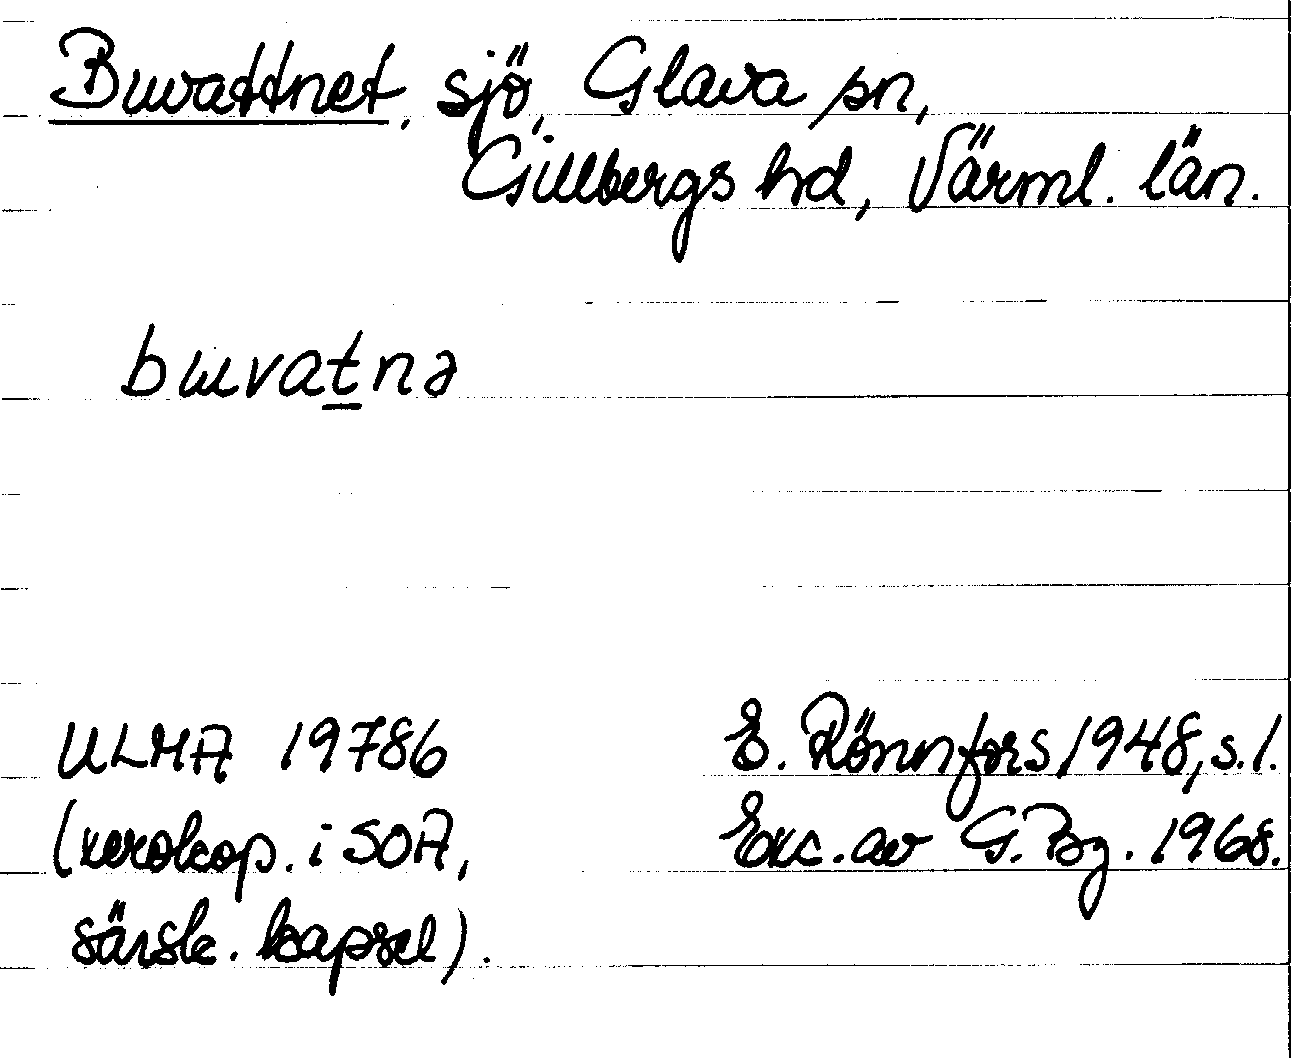 Buvattnet, sjö, Glava sn,
Gillbergs hd, Värml. län.
buvatnə
ULMA 19786
(xerokop. i SOA,
särsk. kapsel).
E. Rönnfors 1948, s. 1.
Exc. av G. Bg. 1968.